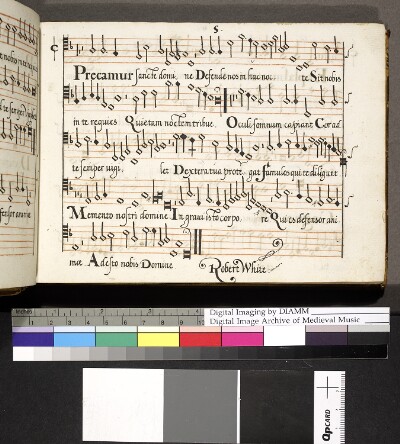 5.
Precamur sancte domi ne Defende nos in hac noc te Sit nobis
in te requies Quietam noctem tribue. Oculi somnum capiant Cor ad
te semper vigi, let Dextera tua prote, gat famulos qui te diligunt
Memento nostri domine In gravi isto corpo, re Qui es defensor ani
mae Adesto nobis Domine Robert White
Digital Imaging by DIAMM
Digital Image Archive of Medieval Music
QPCARD